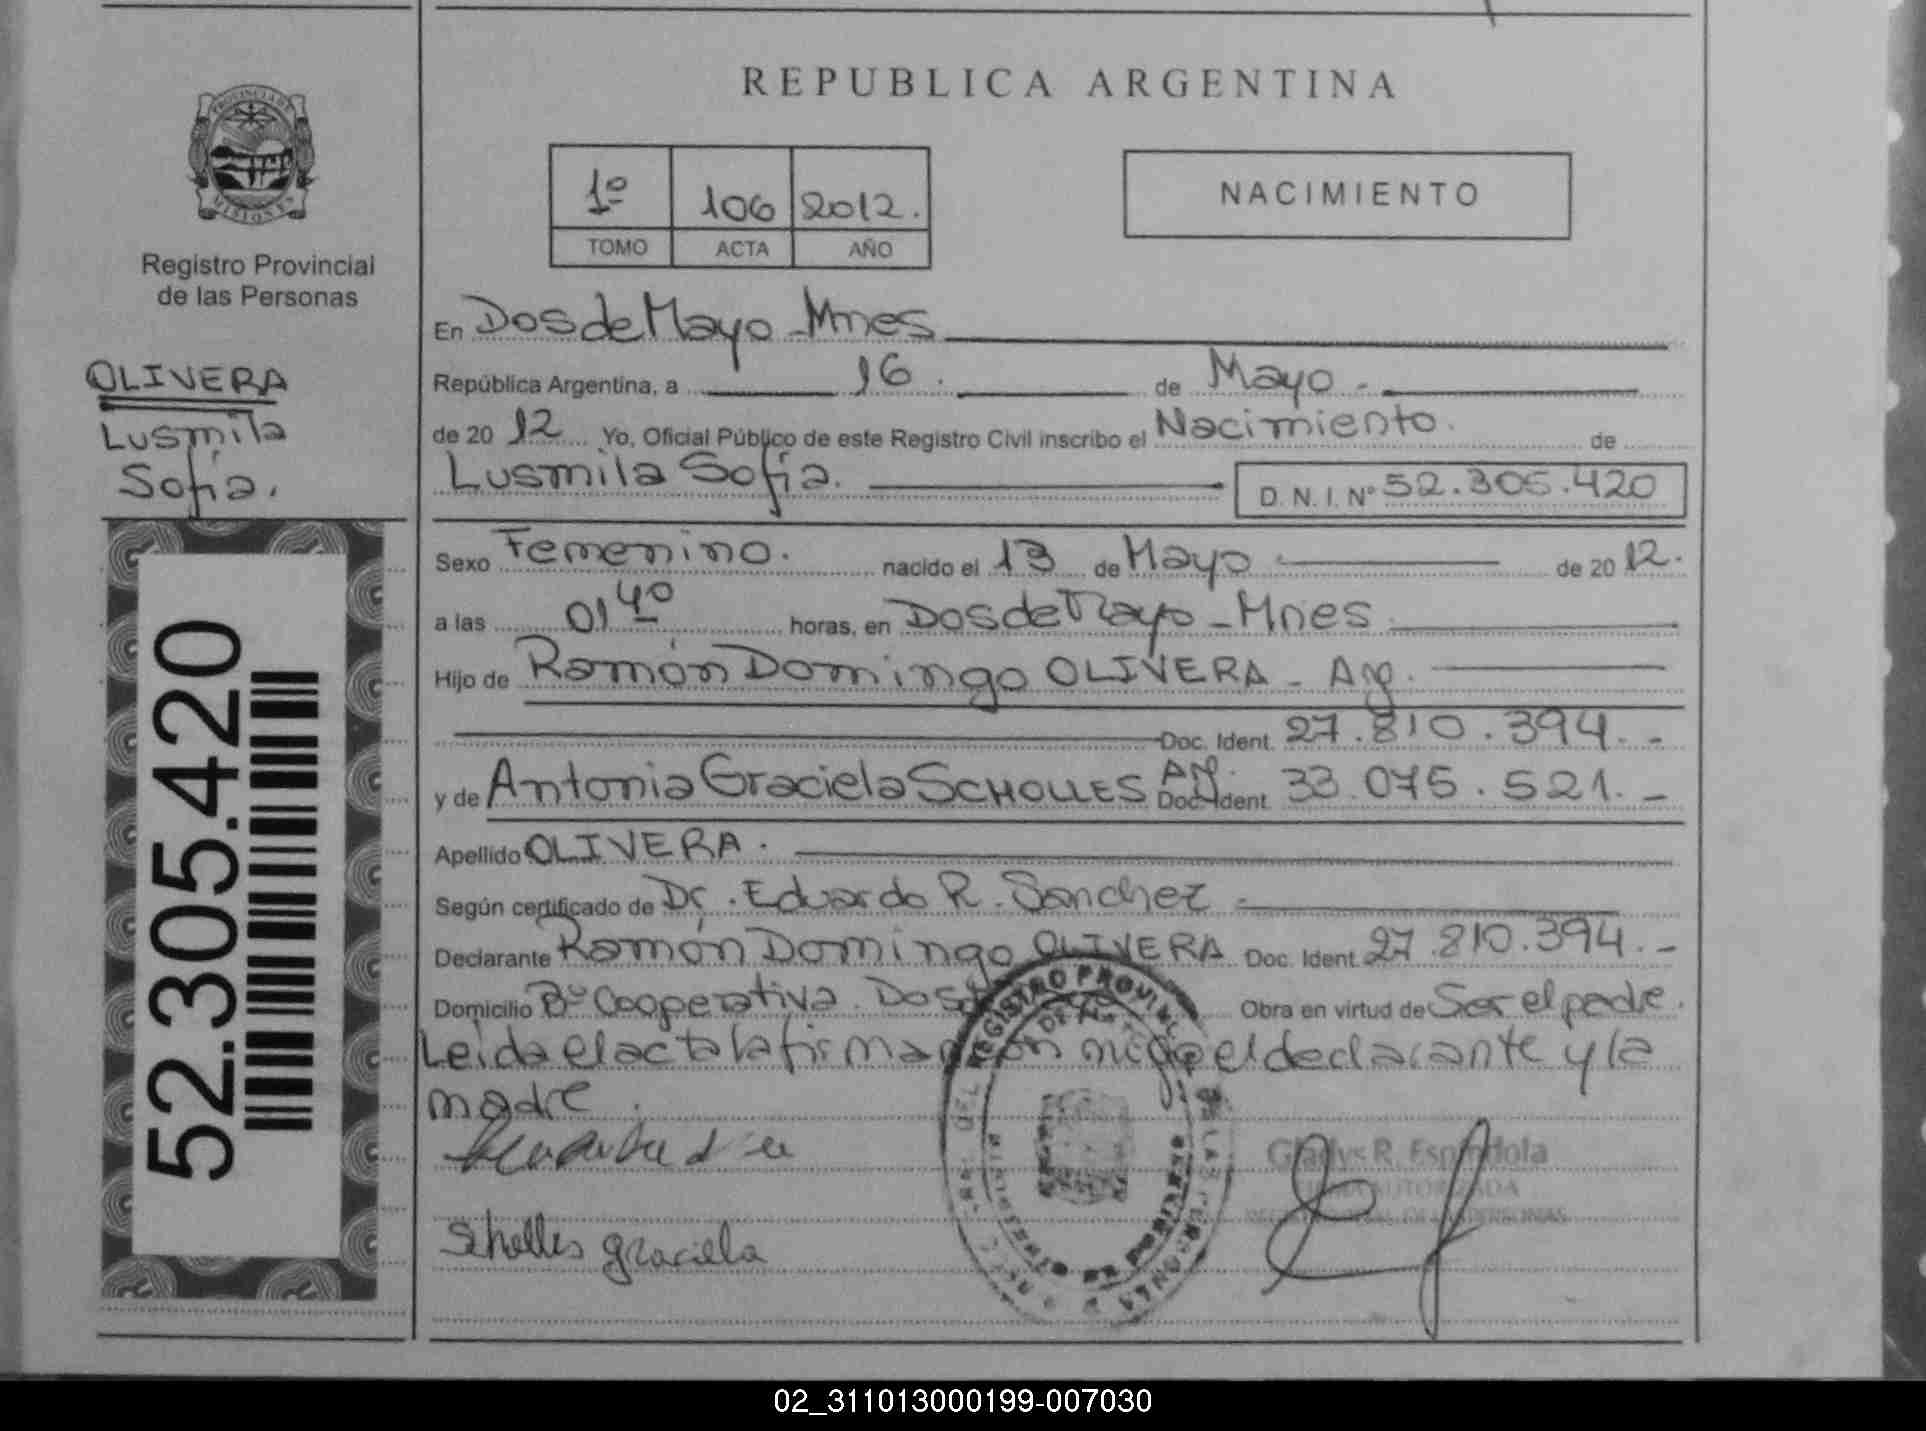 REPUBLICA ARGENTINA
PROVINCIA DE
MISIONES
Registro Provincial
de las Personas
1º 106 2012.
TOMO ACTA AÑO
NACIMIENTO
OLIVERA
Lusmila
Sofía.
52.305.420
En Dos de Mayo - Mnes
República Argentina, a 16. de Mayo -
de 20 12 Yo, Oficial Público de este Registro Civil inscribo el Nacimiento. de
Lusmila Sofía. D. N. I. Nº 52.305.420
Sexo Femenino. nacido el 13 de Mayo de 20 12.
a las 01 40 horas, en Dos de Mayo - Mnes.
Hijo de Ramón Domingo OLIVERA - Arg.
Doc. Ident. 27.810.394. -
y de Antonia Graciela SCHOLLES Arg. Doc. Ident. 33.075.521. -
Apellido OLIVERA.
Según certificado de Dr. Eduardo R. Sanchez -
Declarante Ramón Domingo OLIVERA Doc. Ident. 27.810.394. -
Domicilio Bº Cooperativa. Dos de Obra en virtud de Ser el padre.
Leida el acta la firman con migo el declarante y la
madre.
REGISTRO PROVINCIAL DE LAS PERSONAS
Gladys R. Espindola
FIRMA AUTORIZADA
REGISTRO PROVINCIAL DE LAS PERSONAS
Scholles graciela
02_311013000199-007030